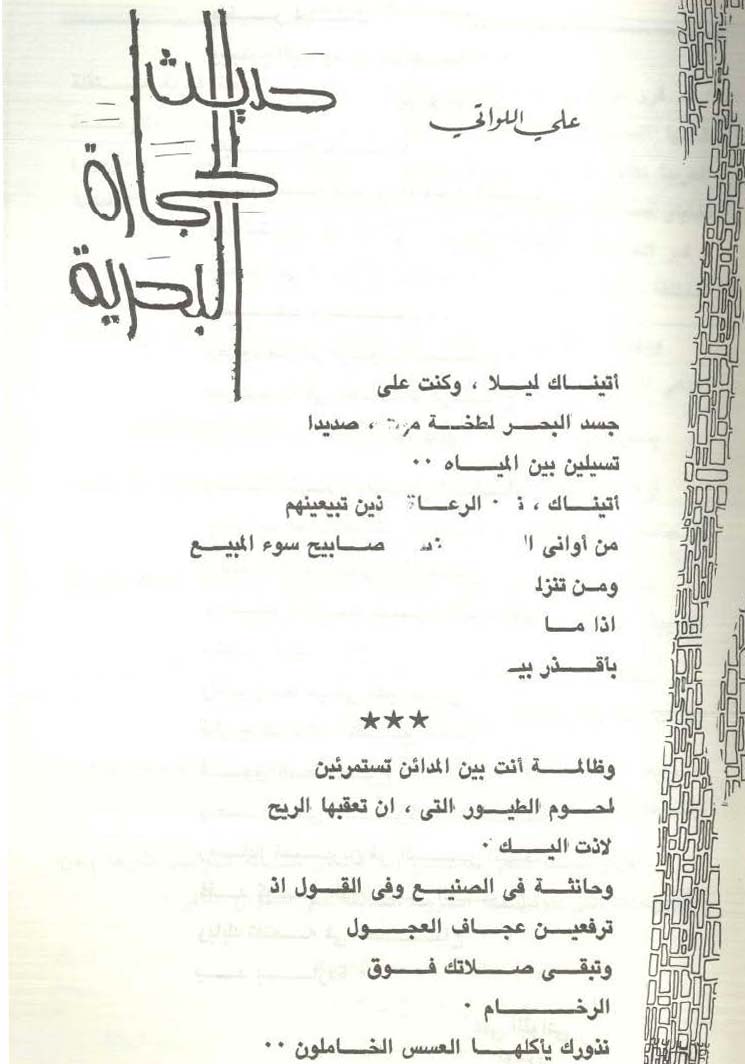 حديث
الحجارة
البحرية
علي اللواتي
أتينــاك ليــلا ، وكنت على
جسد البحــر لطخــة ، صديدا
تسيلين بين الميــاه ٠٠
أتينــاك ، الرعــاة تبيعينهم
من أوانى صــابيح سوء المبيــع
ومــن
اذا مــا
بأقــذر
★★★
وظالمــة أنت بين المدائن تستمرئين
لحــوم الطيــور التى ، ان تعقبها الريح
لاذت اليــك ٠
وحانثــة فى الصنيــع وفى القــول اذ
ترفعيــن عجــاف العجــول
وتبقــى صــلاتك فــوق
الرخــام ٠
نذورك يأكلهــا العسس الخــاملون ٠٠